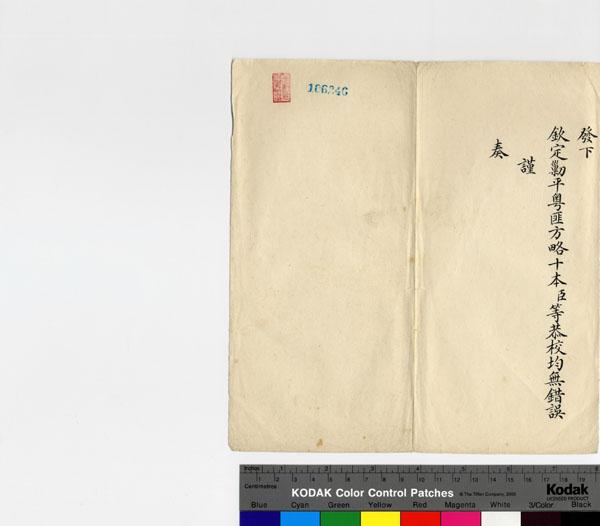 發下
欽定勦平粵匪方略十本臣等恭校均無錯誤
謹
奏
106246
Inches
Centimetres
KODAK Color Control Patches
© The Tiffen Company, 2000
Kodak
LICENSED PRODUCT
Blue Cyan Green Yellow Red Magenta White 3/Color Black